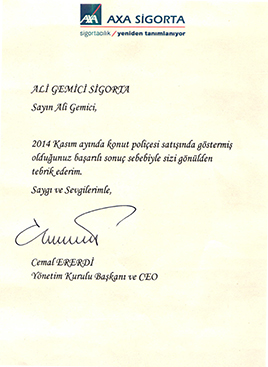 AXA SİGORTA
sigortacılık / yeniden tanımlanıyor
ALİ GEMİCİ SİGORTA
Sayın Ali Gemici,
2014 Kasım ayında konut poliçesi satışında göstermiş
olduğunuz başarılı sonuç sebebiyle sizi gönülden
tebrik ederim.
Saygı ve Sevgilerimle,
Cemal ERERDİ
Yönetim Kurulu Başkanı ve CEO